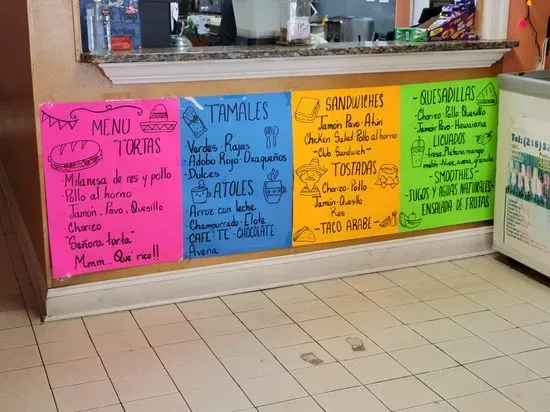 MENU
TORTAS
· Milanesa de res y pollo
Pollo al horno
· Jamón. Pavo. Quesillo
Chorizo
"Señora torta"
Mmm... Que rico!!
TAMALES
· Verdes · Rajas
· Adobo Rojo · Oaxaqueños
· Dulces
ATOLES
Arroz con leche
Champurrado · Elote
CAFE · TE · CHOCOLATE
Avena
SANDWICHES
Jamón Pavo · Atún
Chicken Salad Pollo al horno
· Club Sandwich ·
TOSTADAS
· Chorizo · Pollo
Jamón · Quesillo
Res
- TACO ARABE -
- QUESADILLAS -
Chorizo · Pollo Quesillo
· Jamón · Pavo · Hawaiana
LICUADOS
fresa, Platano, mango
melón · Nuez, avena, granola
SMOOTHIES
· JUGOS Y AGUAS NATURALES
ENSALADA DE FRUTAS
Tel: